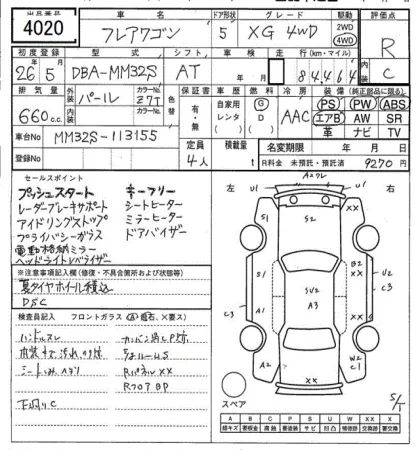 出品番号 車名 ドア形状 グレード 駆動 評価点
4020 フレアワゴン 5 XG 4WD 2WD 4WD R
初度登録 型式 シフト 車検 走行 (km・マイル)
26年5月 DBA-MM32S AT 年 月 84,464 C
排気量 外装 色 カラーNo. 色替 保証書 車歴 燃料 冷房 装備 (純正部品に限る)
660c.c. パール Z7T 有・無 自家用 レンタ G D AAC PS PW ABS
内装 カラーNo. エアB AW SR
車台No MM32S-113155 革 ナビ TV
登録No 定員 4人 積載量 t 名変期限 年 月 日
R料金 未預託・預託済 9270円
セールスポイント
プッシュスタート キーフリー
レーダーブレーキサポート シートヒーター
アイドリングストップ ミラーヒーター
プライバシーガラス ドアバイザー
電動格納ミラー
ヘッドライトレベライザー
※注意事項記入欄(修復・不具合箇所および状態等)
夏タイヤホイール積込
DSC
検査員記入 フロントガラス (A)飛石、X要ス)
ハンドルスレ
下回りC
左 U1 右
A2ワレ
S1 S2 XX
B2 XX U2 C3
S2 A3
C3 A1
A2 XX W2 C1
スペア
S/T
A B C P S U W X XX
線キズ 要板金 腐蝕 要塗装 サビ 凹 補修跡 要交換 交換跡